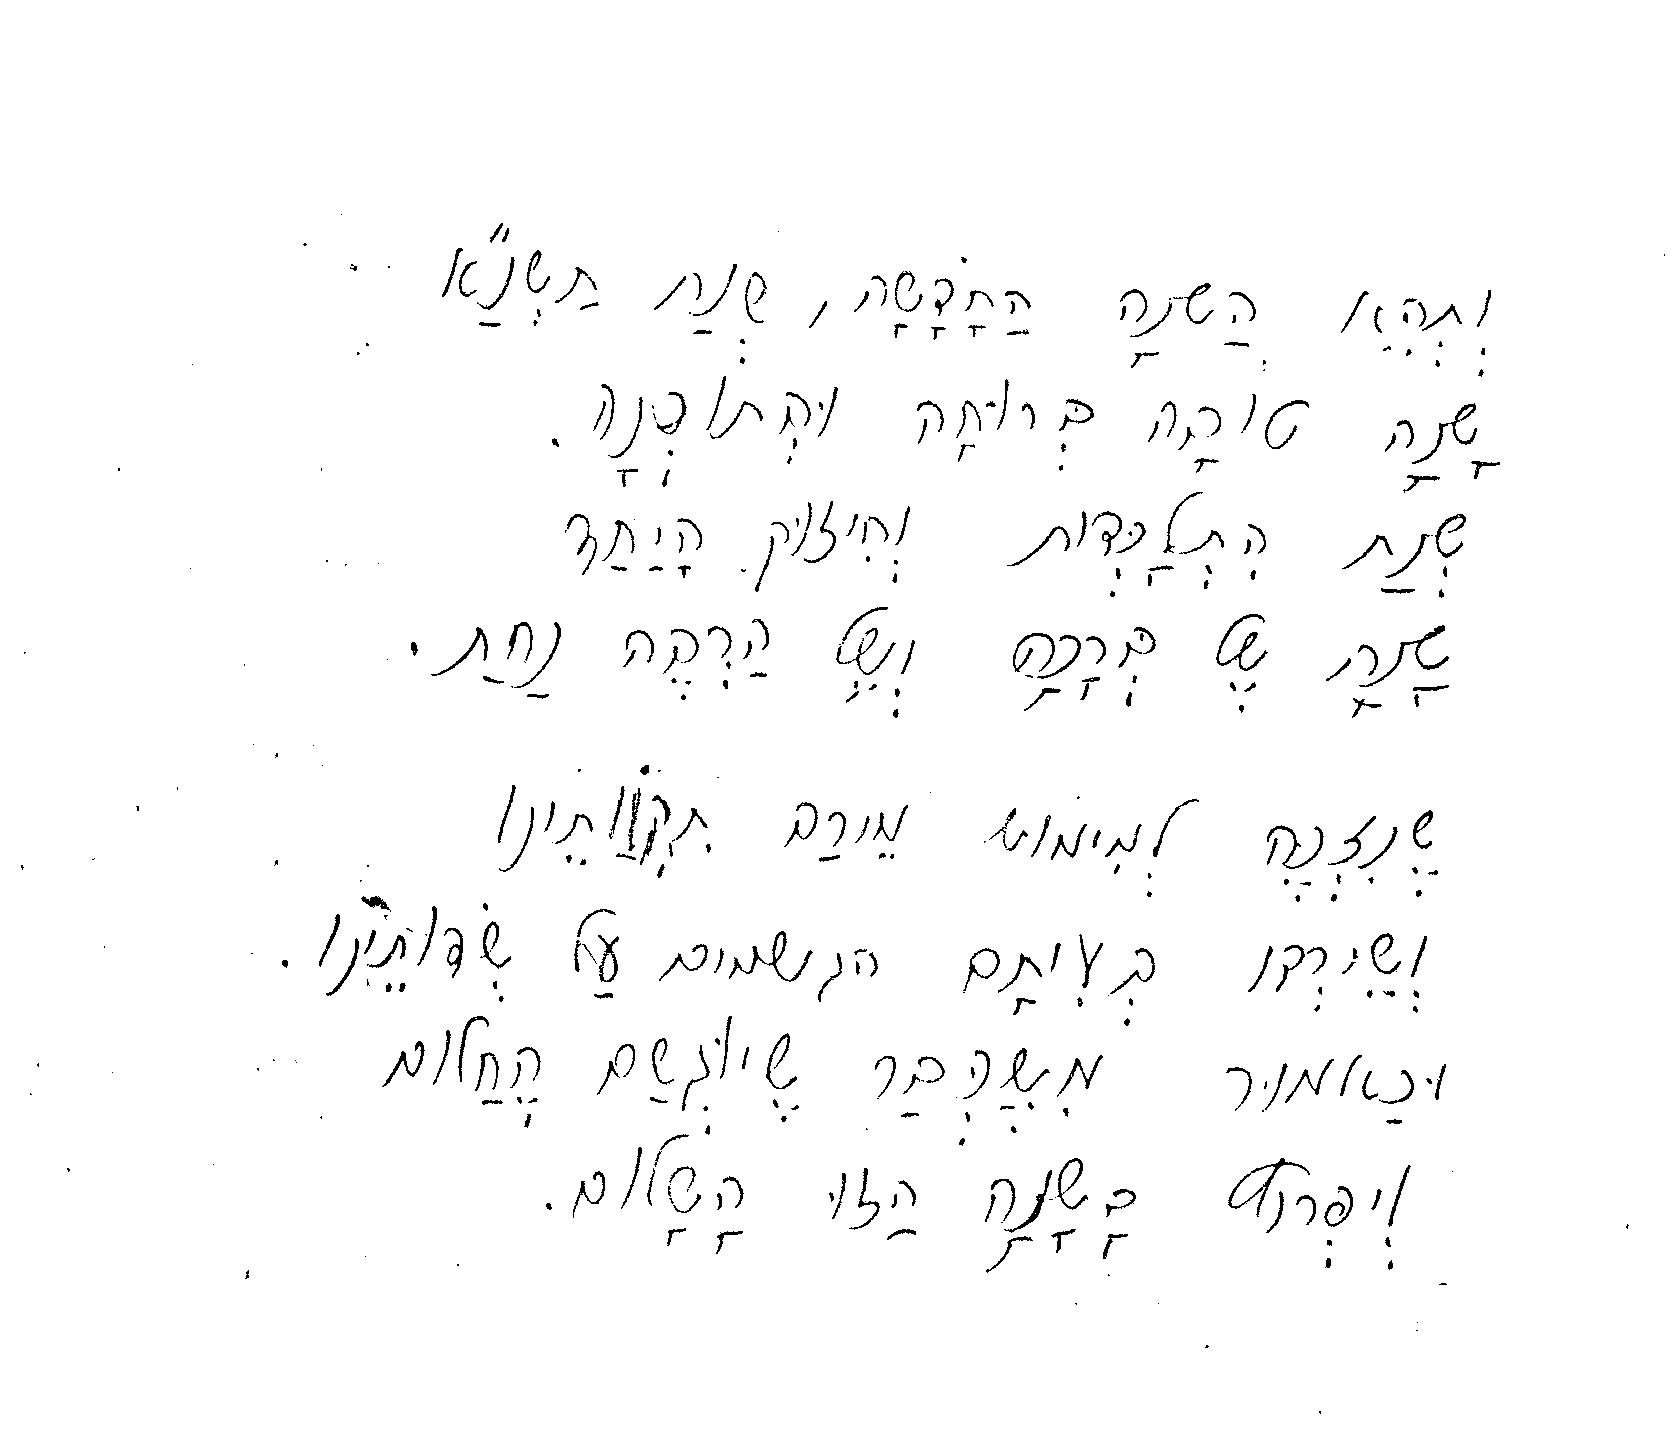 וְתְהֵא הַשנָה הַחֲדָשָה, שְנַת תַשְנַ"א
שָנָה טוֹבָה בְּרוּחָה וּמְתוּכְנָה.
שְנַת הִתְלַכְּדוּת וְחִיזוּק הָיַחַד
שָנָה שֶל בְּרָכָה וְשֶל הַרְבֶּה נַחַת.
שֶנִזְכֶּה לְמִימוּש מֵירַב תִקְווֹתֵינוּ
וְשֶיֵרְדוּ בְּעִיתָם הגשמים עַל שְׂדוֹתֵינוּ.
וּכַאמוּר שֶיוּגְשַם הַחֲלוֹם
בַּשָנָה הַזוּ הָשָלוֹם.